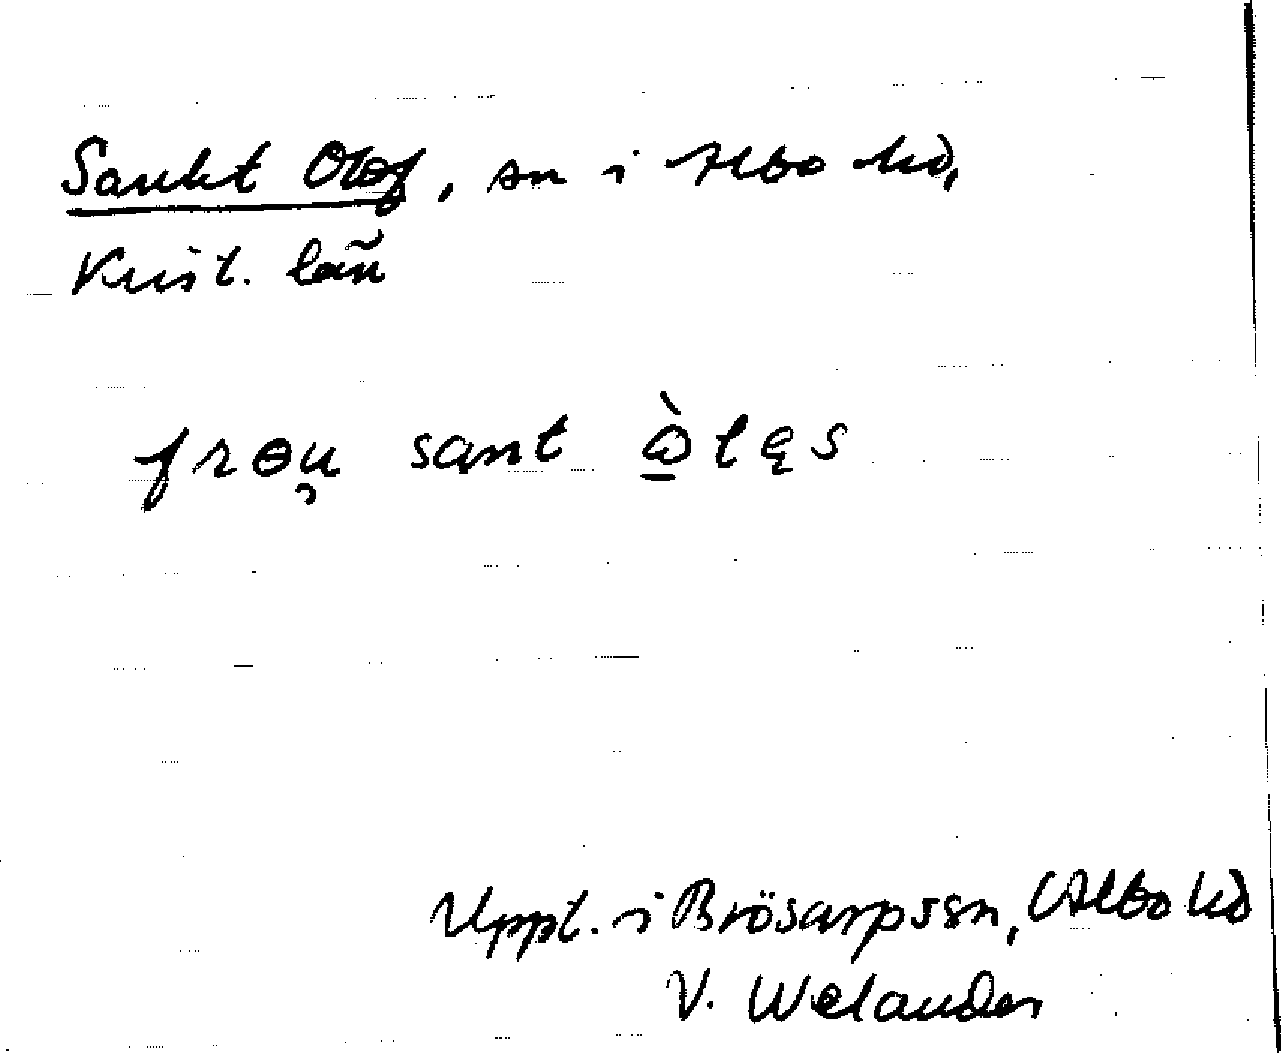 Sankt Olof, sn i Albo hd,
Krist. län
frɵų sant ꙍ̱̀lęs
Uppt. i Brösarpssn, (Albo hd
V. Welander